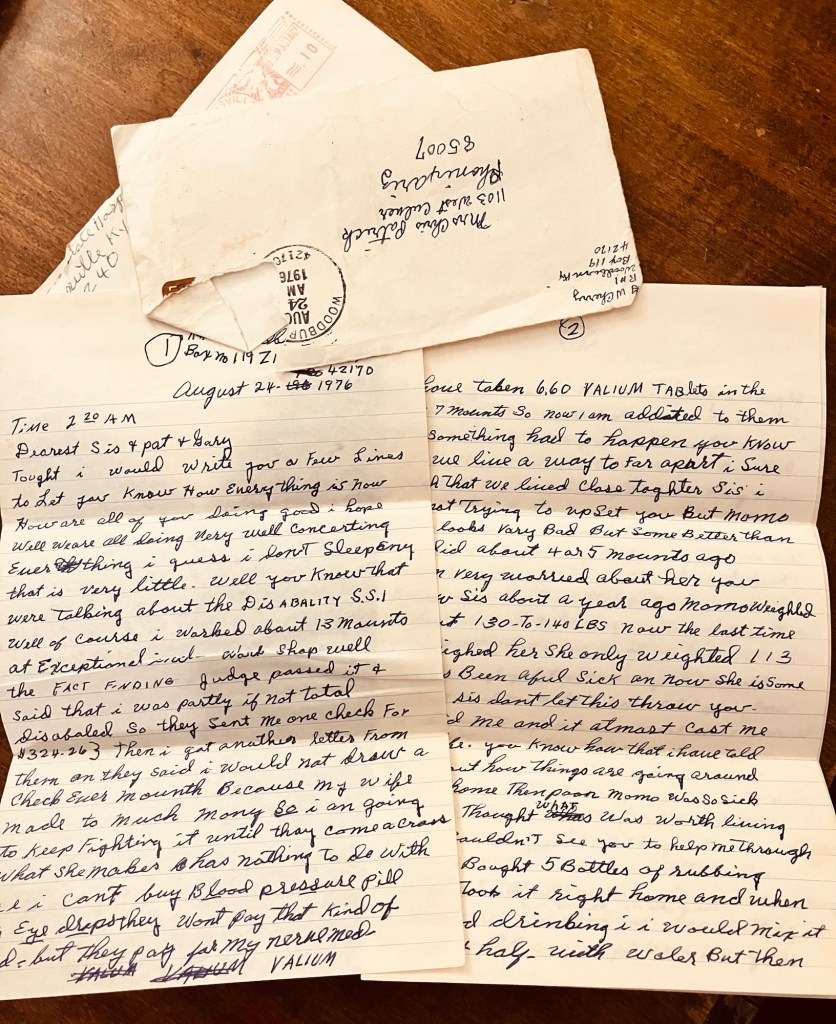 Mrs Chris Patrick
1103 West Culver
Phonix, Ariz
85007
W Cherry
R#1
Woodburn Ky
Box 119
42170
WOODBUR
AUG
24
AM
1976
42170
10
SVILL
Ky
240
1
Box No 119 Z1
42170
August 24- 1976
Time 2 20 AM
Dearest Sis & pat & Gary
Tought i would write you a Few Lines
to Let you Know How Everything is Now
How are all of you doing good i hope
Well we are all doing very well concerting
Ever thing i guess i don't Sleep Eny
that is very little. Well you Know that
were Talking about the DisABALITY S.S.I
Well of course i worked about 13 Mounts
at Exceptional Work Shop well
the FACT FNDING Judge passed it &
Said that i was partly if not total
Disabaled So they Sent Me one check For
$324.26} Then i got another letter From
them an they said i Would not draw a
check Ever Mounth Because my wife
made to Much Mony So i an going
to Keep Fighting it until thay come across
What She makes has nothing to Do with
i can't buy Blood pressure pill
Eye drops they Wont pay that Kind of
but they pay for My nerve med-
VALIUM
2
have taken 6,60 VALIUM TABlets in the
7 Mounts So now i am addated to them
Something had to happen you KNOW
we live a way to Far apart i Sure
that We lived Close toghter Sis i
not Trying to upSet you But Momo
looks Vary Bad But Some Better than
did about 4 or 5 mounts ago
very worried about her you
Sis about a year ago Momo Weighted
130-To-140 LBS now the last time
eighed her She only Weighted 113
Been Aful Sick an now She is Some
sis dant let this throw you-
me and it almast Cast Me
you Know how that i have told
how things are going around
home Then poor Momo Was So Sick
Thought WHAT Was worth living
Couldn't See you to help me through
Bought 5 Bottles of rubbing
Took it right home and when
drinbing i i would Mix it
half- with Water But Then